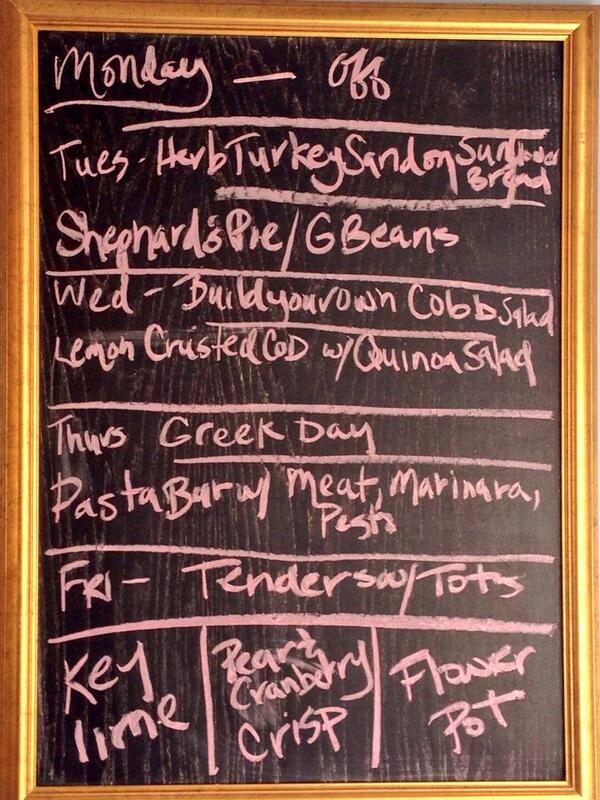 Monday — Off
Tues - Herb Turkey Sand on Sunflower
Bread
Shephard's Pie / G Beans
Wed - Build your own Cobb Salad
Lemon Crusted COD w/ Quinoa Salad
Thurs Greek Day
Pasta Bar w/ Meat, Marinara,
Pesto
FRI - Tenders w/ Tots
Key
lime
Pear &
Cranberry
Crisp
Flower
Pot